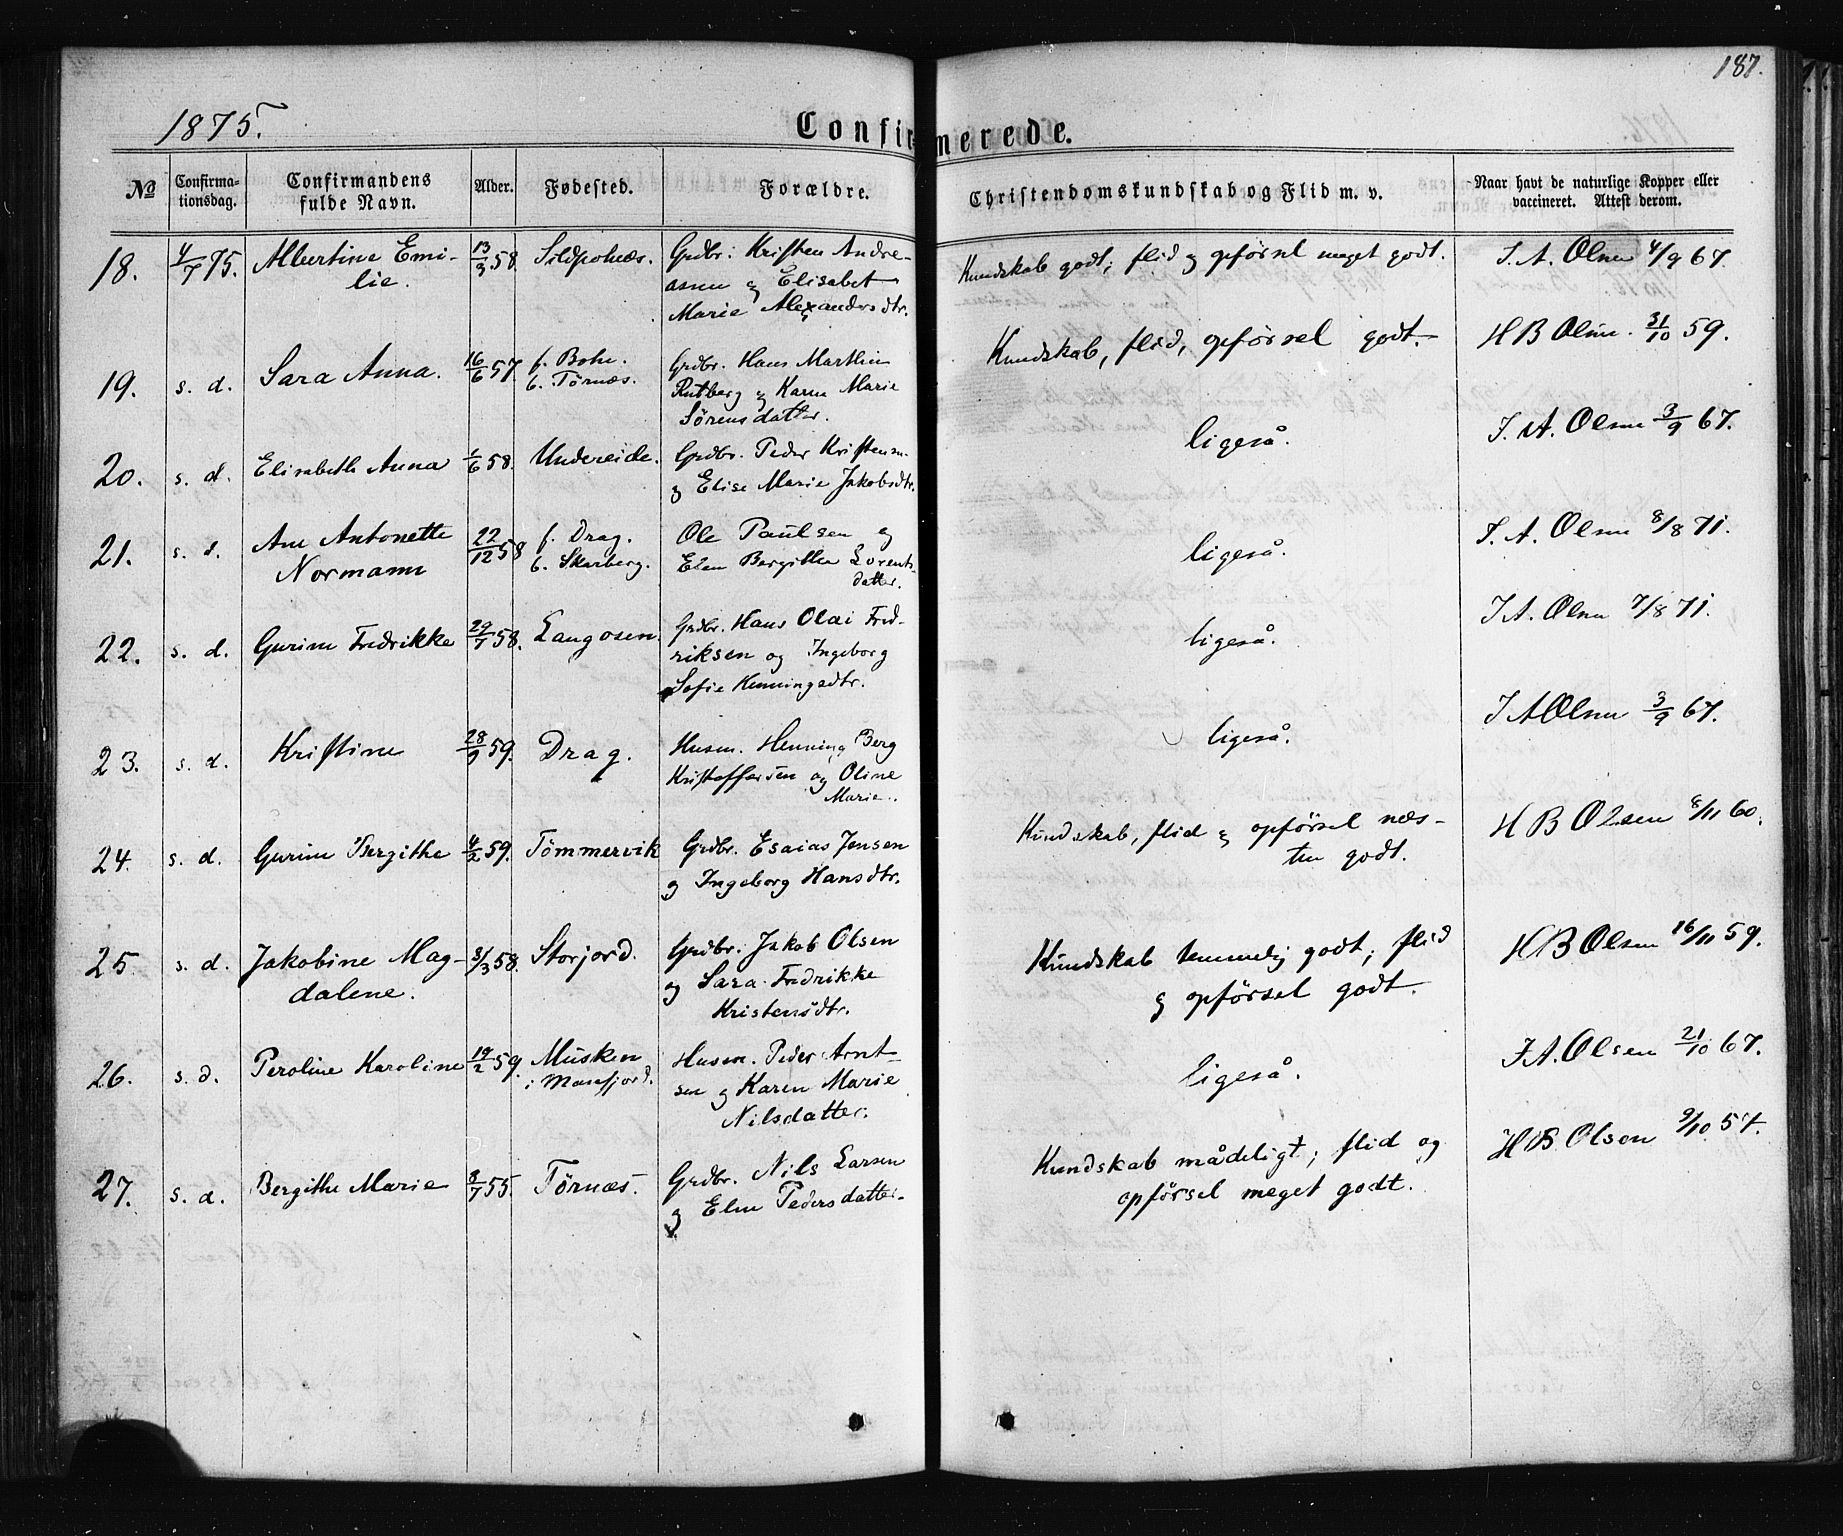 187.
1875.
Confirmerede.
No
Confirma-
tionsdag.
Confirmandens
fulde Navn.
Alder.
Fødested.
Forældre.
Christendomskundskab og Flid m. v.
Naar havt de naturlige Kopper eller
vaccineret. Attest derom.
18. 4/7 75. Albertine Emi- 13/9 58. Sildpolnæs. Grdbr. Kristen Andre- Kundskab godt; flid og opførsel meget godt. J. A. Olsen 4/9 67.
lie. asen og Elisabet
Marie Alexandersdtr.
19. s. d. Sara Anna. 16/6 57. f. Bohn. Grdbr. Hans Marthin Kundskab, flid, opførsel godt. H B Olsen. 31/10 59.
b. Tørnæs. Rutberg og Karen Marie
Sørensdatter.
20. s. d. Elisabeth Anna 1/6 58. Undereide. Grdbr. Peder Kristensen ligeså. J. A. Olsen 3/9 67.
og Elise Marie Jakobsdtr.
21. s. d. Ane Antonette 22/12 58 f. Drag. Ole Paulsen og ligeså. J. A. Olsen 8/8 71.
Normann b. Skarberg. Elen Bergitha Lorents-
datter.
22. s. d. Gurine Fredrikke 29/7 58. Langosen. Grdbr. Hans Olai Fred- ligeså. J A. Olsen 7/8 71.
riksen og Ingeborg
Sofie Henningsdtr.
23. s. d. Kristine 28/9 59. Drag. Husm. Henning Berg ligeså. J A Olsen 3/9 67.
Kristoffersen og Oline
Marie.
24. s. d. Gurine Bergithe 4/2 59. Tømmervik Grdbr. Esaias Jensen Kundskab, flid og opførsel næs- H B Olsen 8/11 60.
og Ingeborg Hansdtr. ten godt.
25. s. d. Jakobine Mag- 8/3 58. Storjord. Grdbr. Jakob Olsen Kundskab temmelig godt; flid H B Olsen 16/11 59.
dalene. og Sara Fredrikke og opførsel godt.
Kristensdtr.
26. s. d. Peroline Karoline 19/2 59. Musken Husm. Peder Arnt- ligeså. J A. Olsen 21/10 67.
i Mansfjord. sen og Karen Marie
Nilsdatter.
27. s. d. Bergithe Marie 8/7 55. Tørnæs. Grdbr. Nils Larsen Kundskab mådeligt; flid og H B. Olson 9/10 57.
og Elen Pedersdatter. opførsel meget godt.